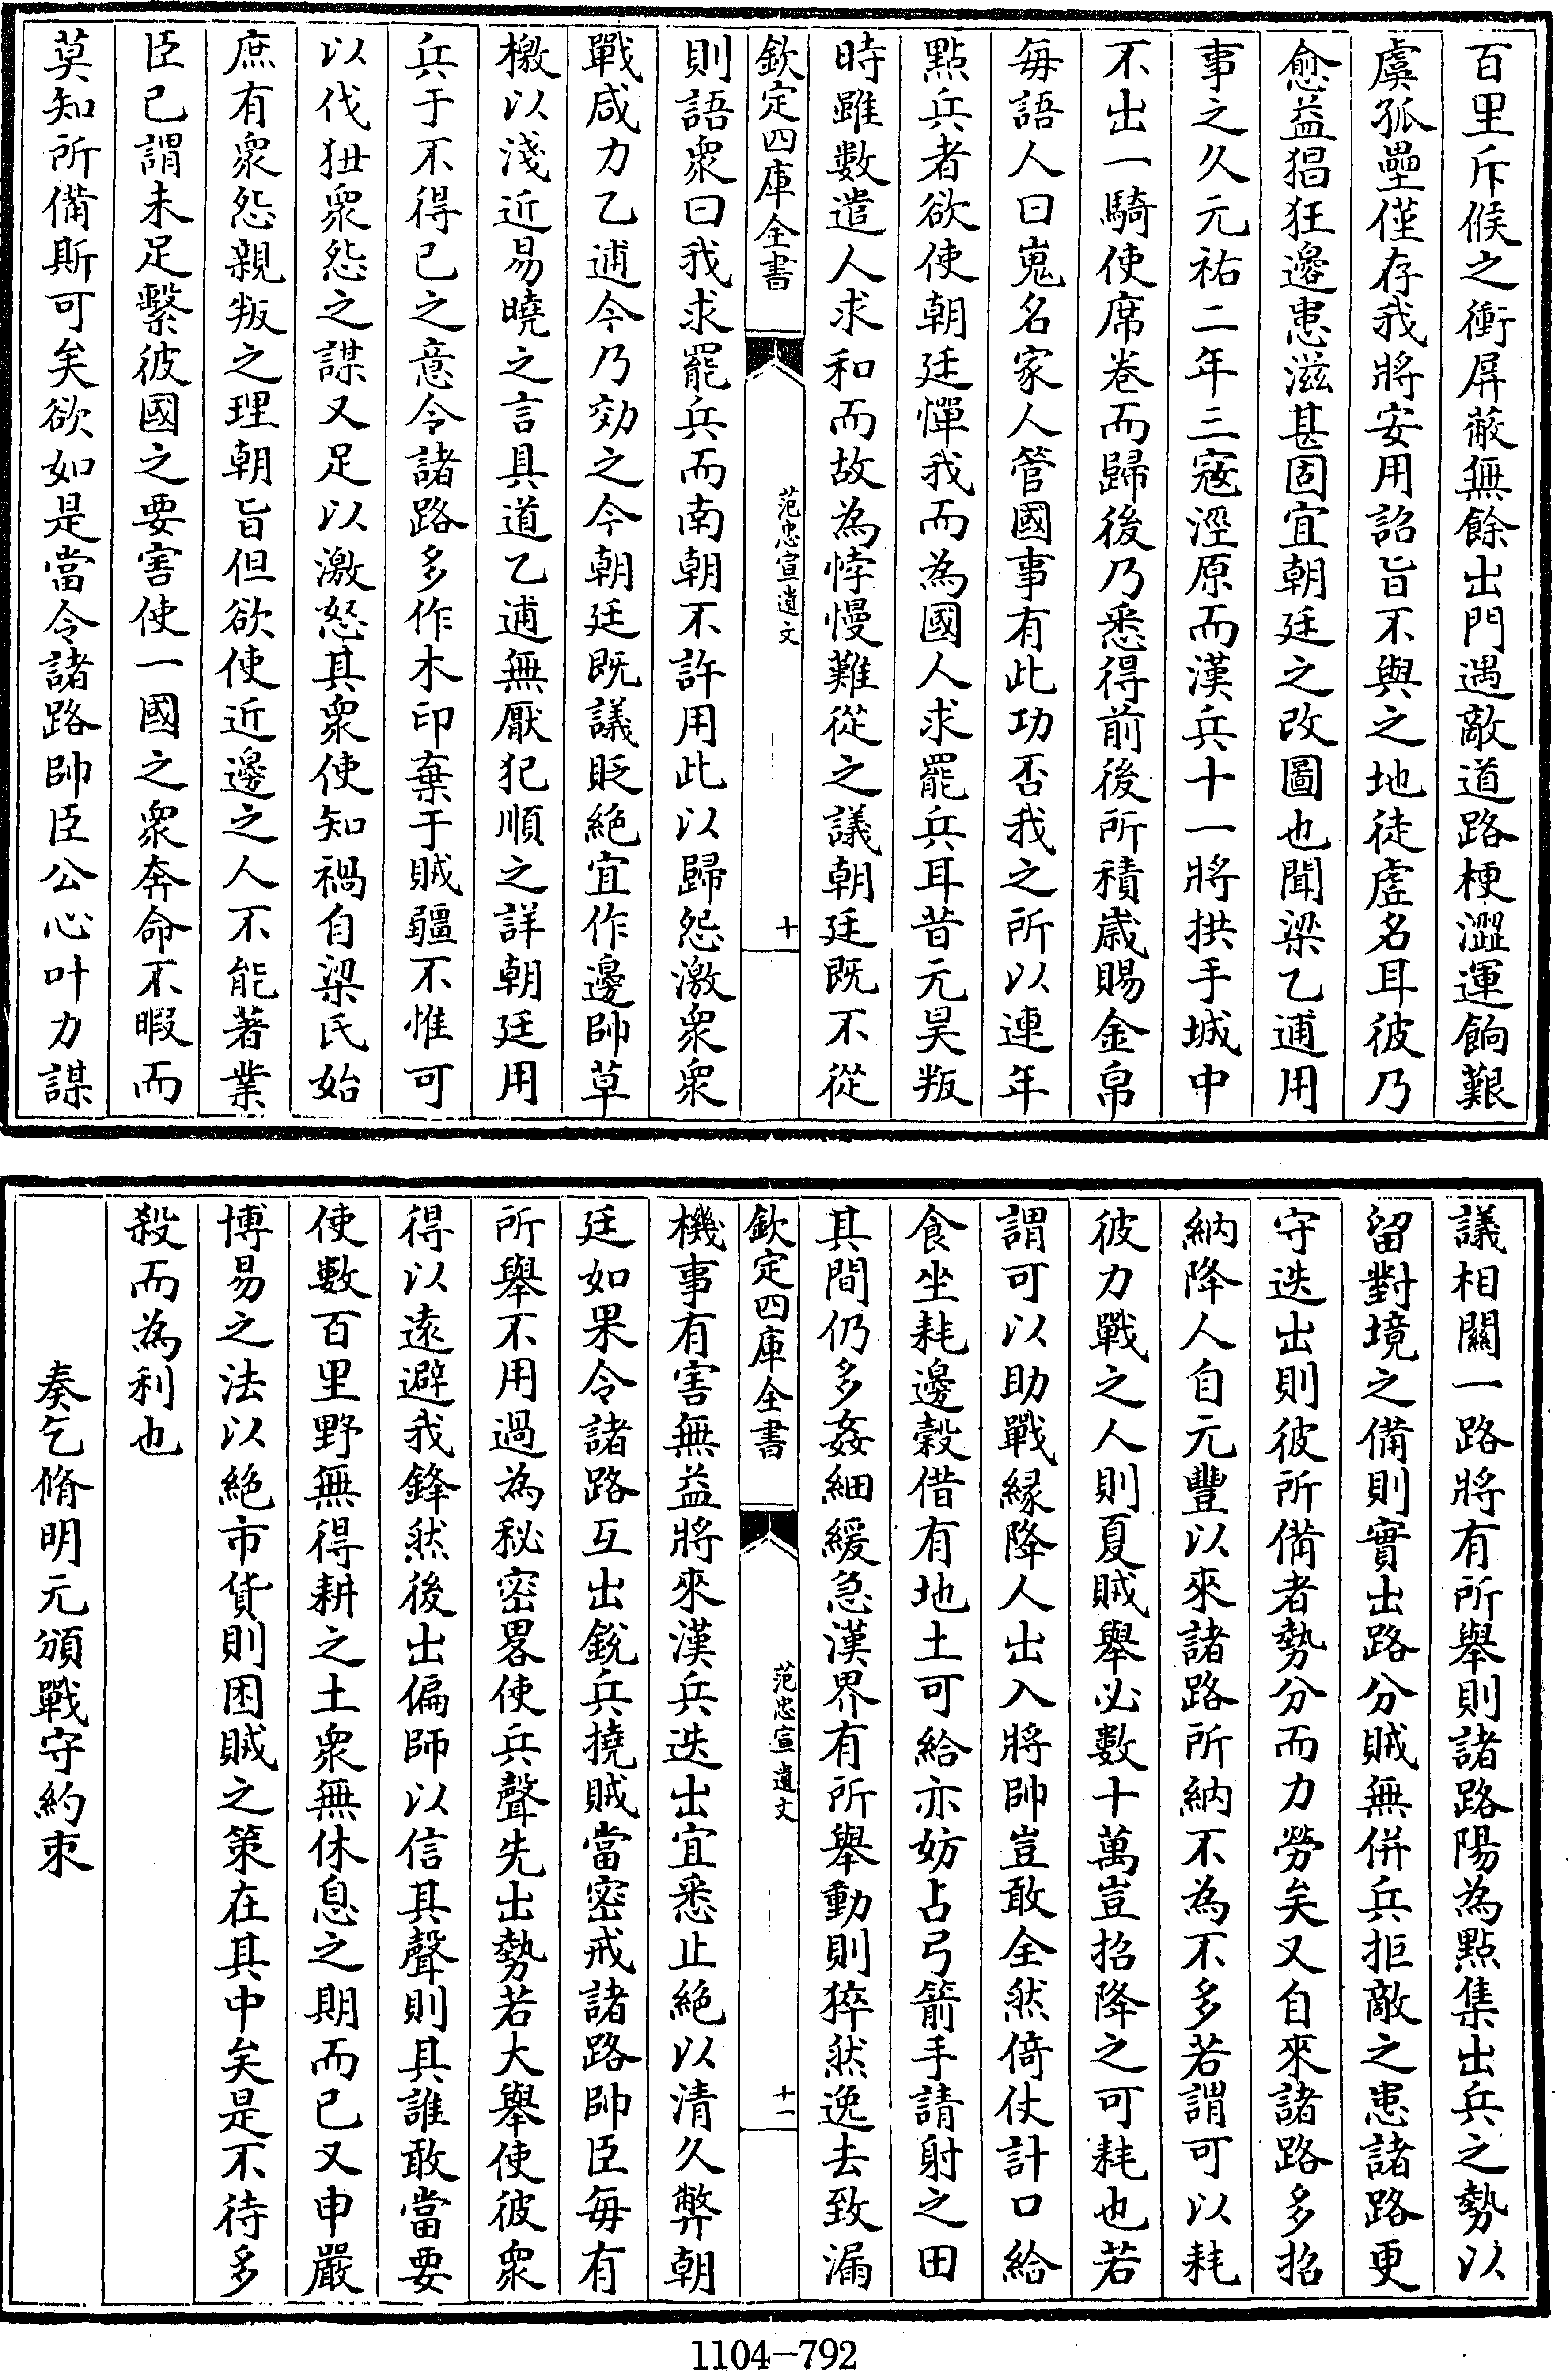 百里斥候之衝屏蔽無餘出門遇敵道路梗澀運餉艱
虞孤壘僅存我將安用詔旨不與之地徒虛名耳彼乃
愈益猖狂邊患滋甚固宜朝廷之改圖也聞梁乙逋用
事之久元祐二年三寇涇原而漢兵十一將拱手城中
不出一騎使席卷而歸後乃悉得前後所積歲賜金帛
每語人曰嵬名家人管國事有此功否我之所以連年
點兵者欲使朝廷憚我而為國人求罷兵耳昔元昊叛
時雖數遣人求和而故為悖慢難從之議朝廷既不從
欽定四庫全書
范忠宣遺文
十
則語衆曰我求罷兵而南朝不許用此以歸怨激衆衆
戰咸力乙逋今乃効之今朝廷既議貶絶宜作邊帥草
檄以淺近易曉之言具道乙逋無厭犯順之詳朝廷用
兵于不得已之意令諸路多作木印棄于賊疆不惟可
以伐狃衆怨之謀又足以激怒其衆使知禍自梁氏始
庶有衆怨親叛之理朝旨但欲使近邊之人不能著業
臣已謂未足繫彼國之要害使一國之衆奔命不暇而
莫知所備斯可矣欲如是當令諸路帥臣公心叶力謀
議相關一路將有所舉則諸路陽為點集出兵之勢以
留對境之備則實出路分賊無併兵拒敵之患諸路更
守迭出則彼所備者勢分而力勞矣又自來諸路多招
納降人自元豐以來諸路所納不為不多若謂可以耗
彼力戰之人則夏賊舉必數十萬豈招降之可耗也若
謂可以助戰緣降人出入將帥豈敢全然倚仗計口給
食坐耗邊穀借有地土可給亦妨占弓箭手請射之田
其間仍多姦細緩急漢界有所舉動則猝然逸去致漏
欽定四庫全書
范忠宣遺文
十一
機事有害無益將來漢兵迭出宜悉止絶以清久弊朝
廷如果令諸路互出銳兵撓賊當密戒諸路帥臣每有
所舉不用過為秘密畧使兵聲先出勢若大舉使彼衆
得以遠避我鋒然後出偏師以信其聲則其誰敢當要
使數百里野無得耕之土衆無休息之期而已又申嚴
博易之法以絶市貨則困賊之策在其中矣是不待多
殺而為利也
奏乞脩明元頒戰守約束
1104-792